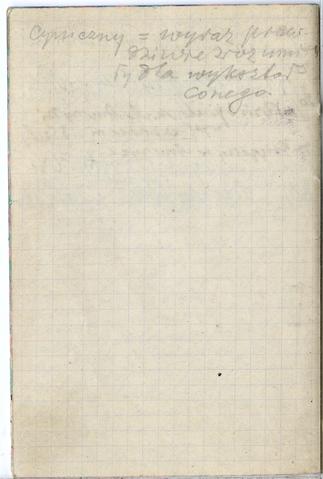 cyniczny = wyraz praw-
dziwie zrozumia
ły dla wykształ
conego